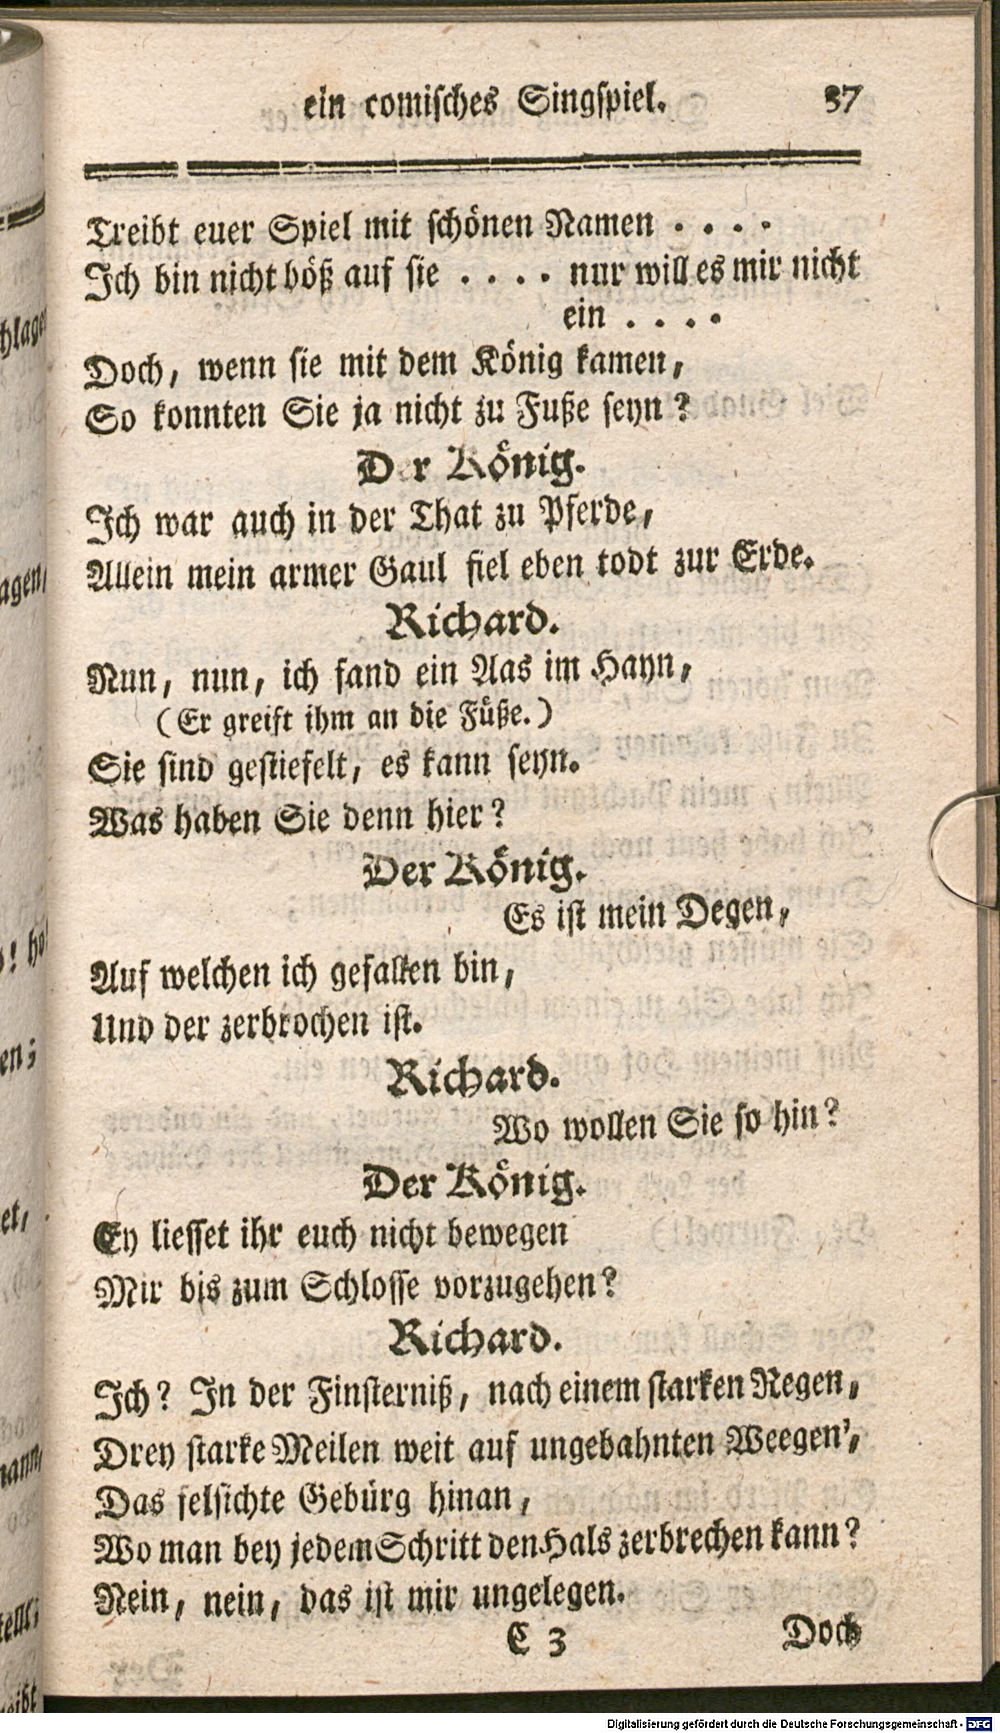 ein comisches Singspiel. 37
Treibt euer Spiel mit schönen Namen . . . .
Ich bin nicht böß auf sie . . . . nur will es mir nicht
ein . . . .
Doch, wenn sie mit dem König kamen,
So konnten Sie ja nicht zu Fuße seyn?
Der König.
Ich war auch in der That zu Pferde,
Allein mein armer Gaul fiel eben todt zur Erde.
Richard.
Nun, nun, ich fand ein Aas im Hayn,
(Er greift ihm an die Füße.)
Sie sind gestiefelt, es kann seyn.
Was haben Sie denn hier?
Der König.
Es ist mein Degen,
Auf welchen ich gefallen bin,
Und der zerbrochen ist.
Richard.
Wo wollen Sie so hin?
Der König.
Ey liesset ihr euch nicht bewegen
Mir bis zum Schlosse vorzugehen?
Richard.
Ich? In der Finsterniß, nach einem starken Regen,
Drey starke Meilen weit auf ungebahnten Weegen,
Das felsichte Gebürg hinan,
Wo man bey jedem Schritt den Hals zerbrechen kann?
Nein, nein, das ist mir ungelegen.
C 3 Doch
Digitalisierung gefördert durch die Deutsche Forschungsgemeinschaft - DFG